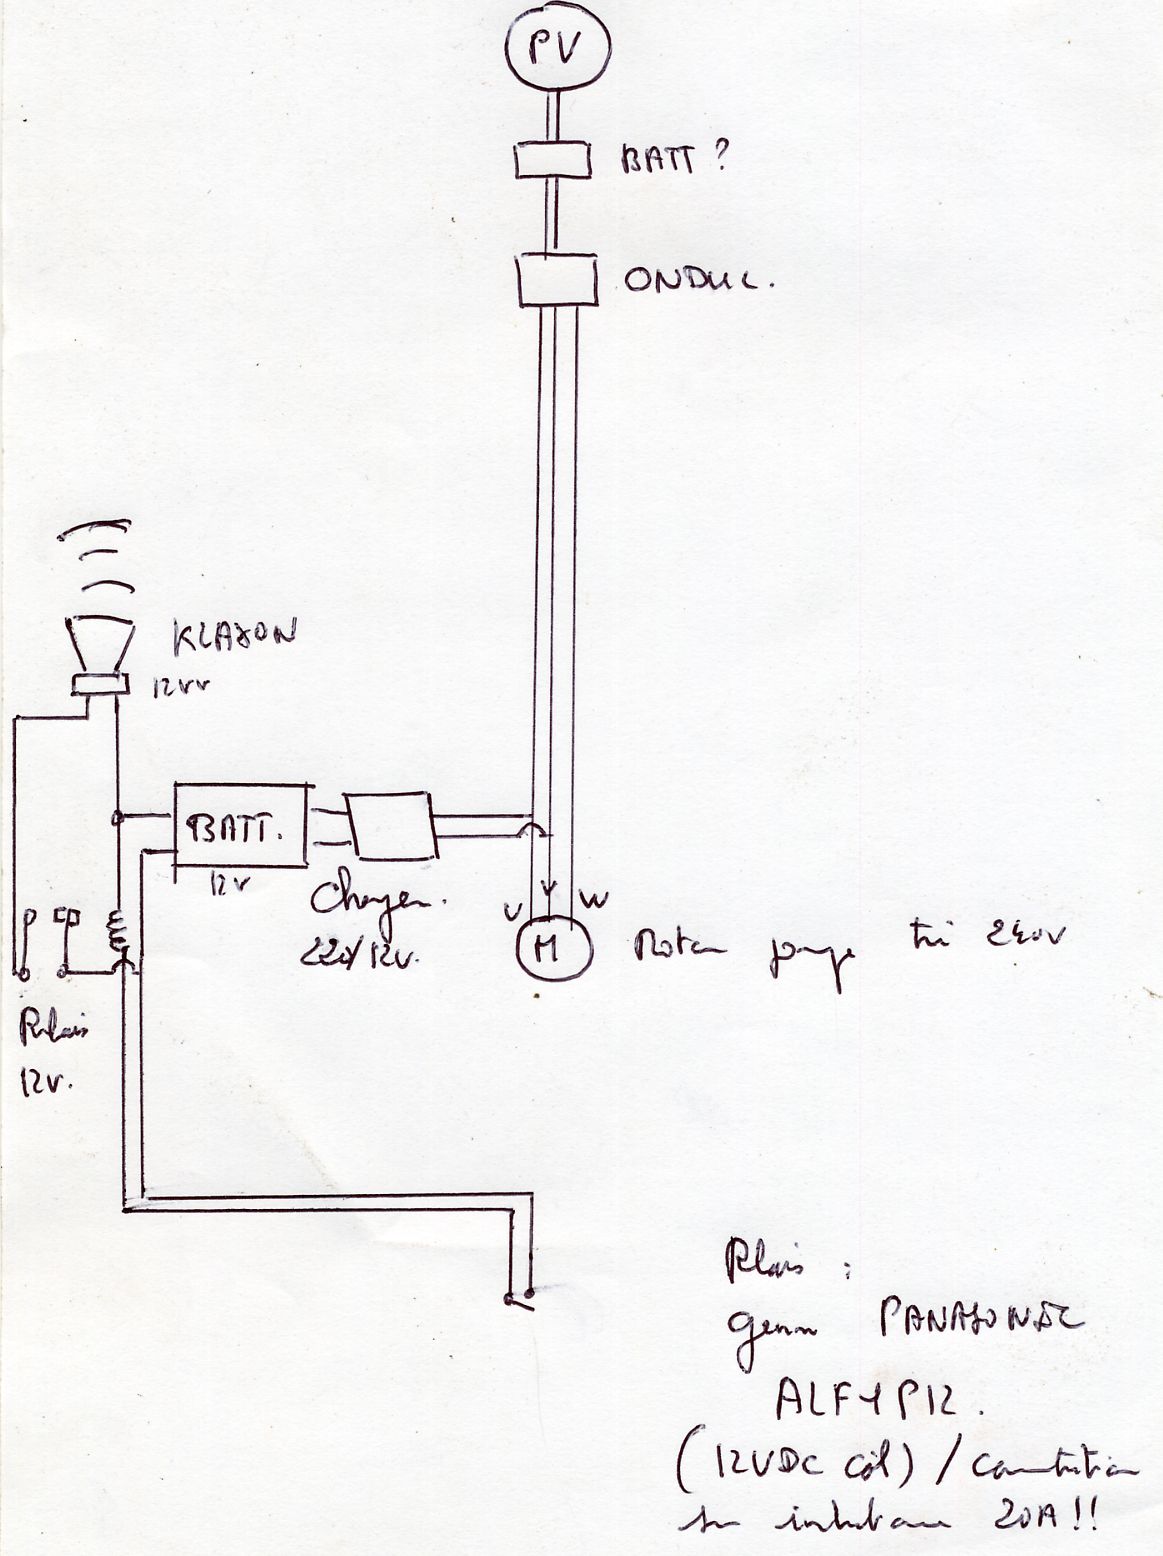 PV
BATT ?
ONDUL.
KLAXON
12V
BATT.
12V
Chargeur.
220/12V.
U V W
M
Moteur pompe tri 240V
Relais
12V.
Relais :
genre PANASONIC
ALF1P12.
(12VDC coil) / commutation
sur 20A!!